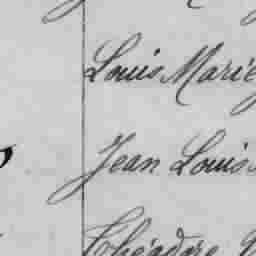 Louis Marie
Jean Louis
Théodore